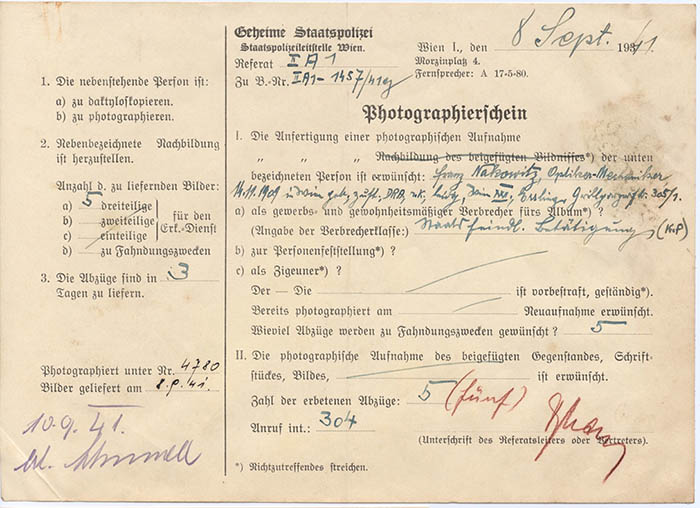 1. Die nebenstehende Person ist:
a) zu daktyloskopieren.
b) zu photographieren.
2. Nebenbezeichnete Nachbildung
ist herzustellen.
Anzahl d. zu liefernden Bilder:
a) 5 dreiteilige
b) zweiteilige
c) einteilige
für den
Erk.-Dienst
d) zu Fahndungszwecken
3. Die Abzüge sind in 3
Tagen zu liefern.
Photographiert unter Nr. 4780
Bilder geliefert am 8.9.41.
10.9.41.
Geheime Staatspolizei
Staatspolizeileitstelle Wien.
Referat II A 1
Zu B.-Nr. II A1-1457/41
Wien I., den 8 Sept. 1941
Morzinplatz 4.
Fernsprecher: A 17-5-80.
Photographierschein
I. Die Anfertigung einer photographischen Aufnahme
„ „ „ Nachbildung des beigefügten Bildnisses*) der unten
bezeichneten Person ist erwünscht: Franz Nakowitz, Optiker-Mechaniker
14.11.1909 in Wien geb., zust., led., Wien 305/
a) als gewerbs- und gewohnheitsmäßiger Verbrecher fürs Album*) ?
(Angabe der Verbrecherklasse: Staatsfeindl. Betätigung (KP)
b) zur Personenfeststellung*) ?
c) als Zigeuner*) ?
Der — Die ist vorbestraft, geständig*).
Bereits photographiert am Neuaufnahme erwünscht.
Wieviel Abzüge werden zu Fahndungszwecken gewünscht ? 5
II. Die photographische Aufnahme des beigefügten Gegenstandes, Schrift-
stückes, Bildes, ist erwünscht.
Zahl der erbetenen Abzüge: 5 (fünf)
Anruf int.: 304
(Unterschrift des Referatsleiters oder Vertreters).
*) Nichtzutreffendes streichen.